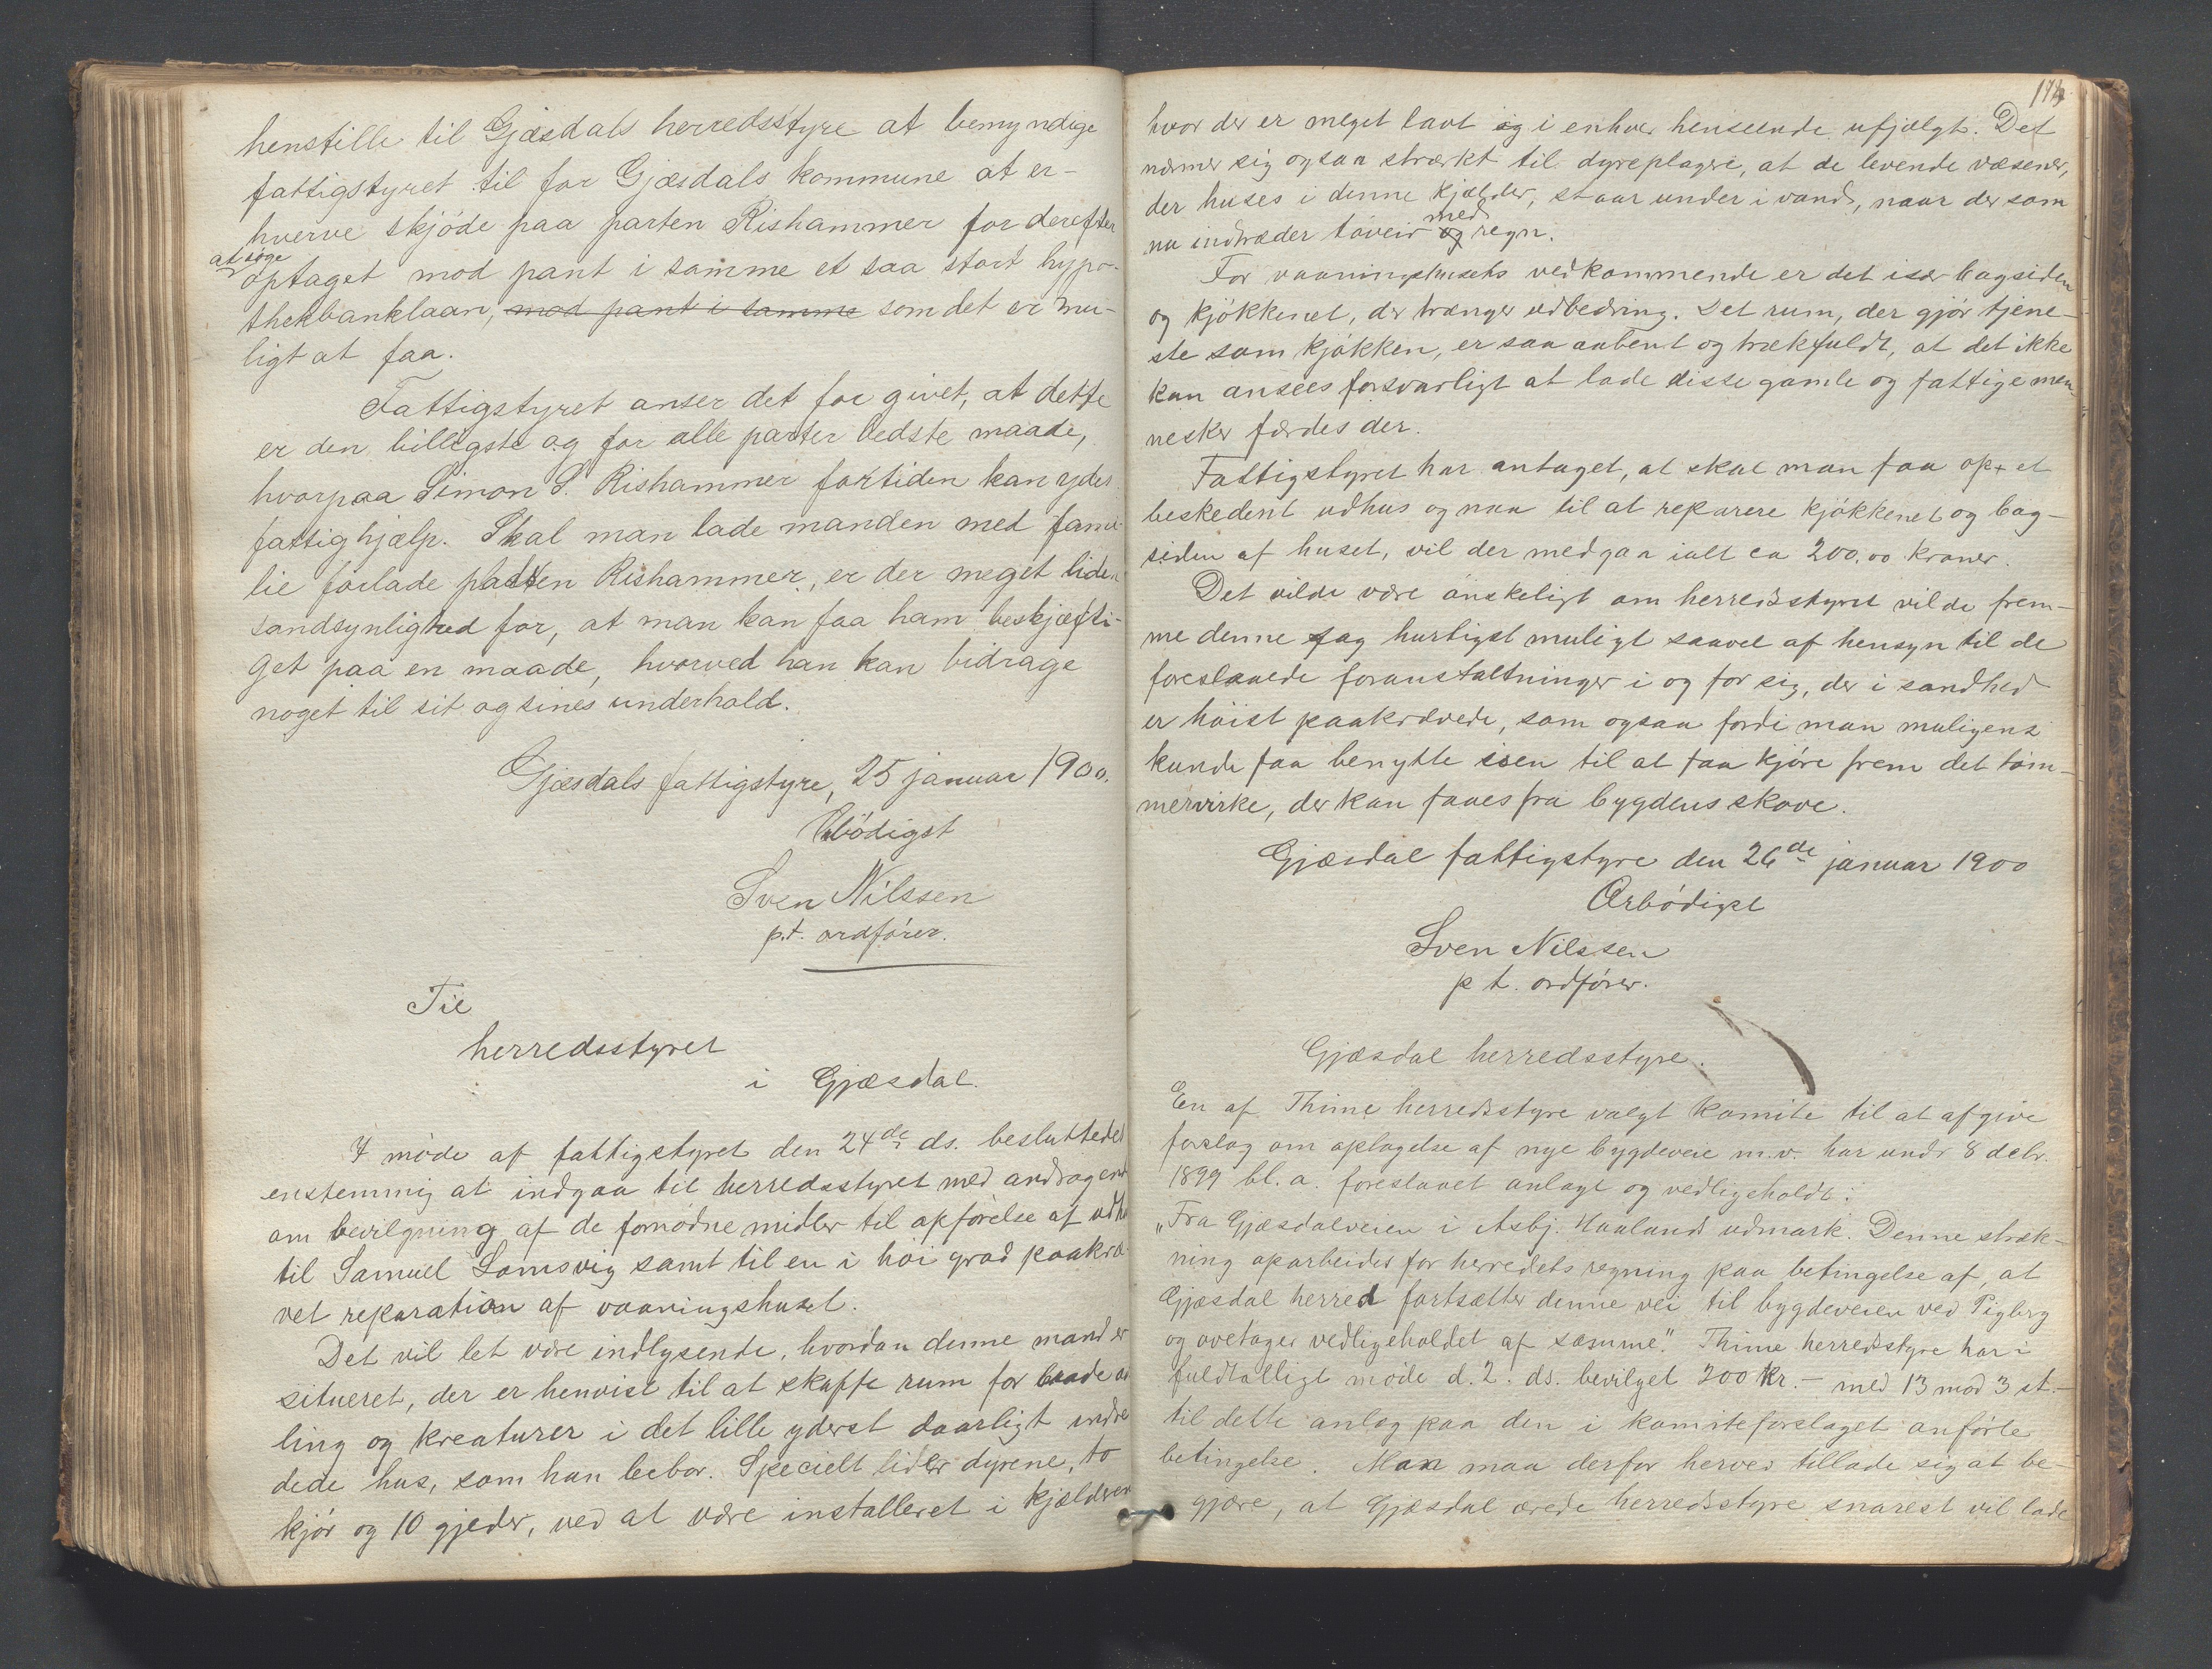 henstille til Gjæsdals herredsstyre at bemyndige
fattigstyret til for Gjæsdals kommune at er-
hverve skjöde paa parten Rishammer for derefter
at söge
optaget mod pant i samme et saa stort hypo-
thekbanklaan, mod pant i samme som det er mu-
ligt at faa.
Fattigstyret anser det for givet, at dette
er den billigste og for alle parter bedste maade,
hvorpaa Simon S. Rishammer fortiden kan ydes
fattighjælp. Skal man lade manden med fami-
lie forlade pladsen Rishammer, er der meget liden
sandsynlighed for, at man kan faa ham beskjæfti-
get paa en maade, hvorved han kan bidrage
noget til sit og sines underhold.
Gjæsdals fattigstyre, 25 januar 1900.
Ærbödigst
Sven Nilssen
p.t. ordförer.
Til
herredsstyret
i Gjæsdal.
I möde af fattigstyret den 24de ds. besluttedes
enstemmig at indgaa til herredsstyret med andragende
om bevilgning af de fornödne midler til opförelse af udhus
til Samuel Lomsvig samt til en i höi grad paakræ-
vet reparation af vaaningshuset.
Det vil let være indlysende, hvordan denne mand er
situeret, der er henvist til at skaffe rum for baade av-
ling og kreaturer i det lille yderst daarligt indre-
dede hus, som han bebor. Specielt lider dyrene, to
kjör og 10 gjeder, ved at være installeret i kjælderen
173
hvor der er meget lavt og i enhver henseende ufjelgt. Det
nærmer sig ogsaa stærkt til dyreplageri, at de levende væsener,
der huses i denne kjælder, staar under i vand, naar der som
nu indtræder töveir og med regn.
For vaaningshusets vedkommende er det især bagsiden
og kjökkenet, der trænger udbedring. Det rum, der gjör tjene-
ste som kjökken, er saa aabent og trækfuldt, at det ikke
kan ansees forsvarligt at lade disse gamle og fattige men-
nesker færdes der.
Fattigstyret har antaget, at skal man faa op et
beskedent udhus og naa til at reparere kjökkenet og bag-
siden af huset, vil der medgaa ialt ca 200,00 kroner.
Det vilde være önskeligt om herredsstyret vilde frem-
me denne sag hurtigst muligt saavel af hensyn til de
foreslaaede foranstaltninger i og for sig, der i sandhed
er höist paakrævede, som ogsaa fordi man muligens
kunde faa benytte isen til at faa kjöre frem det töm-
mervirke, der kan faaes fra bygdens skove.
Gjæsdal fattigstyre den 26de januar 1900
Ærbödigst
Sven Nilssen
p t. ordförer.
Gjæsdal herredsstyre.
En af Thime herredsstyre valgt komite til at afgive
forslag om optagelse af nye bygdeveie m.v. har under 8 debr.
1899 bl. a. foreslaaet anlagt og vedligeholdt:
„Fra Gjæsdalveien i Asbj. Haalands udmark. Denne stræk-
ning oparbeides for herredets regning paa betingelse af, at
Gjæsdal herred fortsætter denne vei til bygdeveien ved Pigberg
og overtager vedligeholdet af samme". Thime herredsstyre har i
fuldtalligt möde d. 2. ds. bevilget 200 kr. – med 13 mod 3 st. –
til dette anlæg paa den i komiteforslaget anförte
betingelse. Man maa derfor herved tillade sig at be-
gjære, at Gjæsdal ærede herredsstyre snarest vil lade